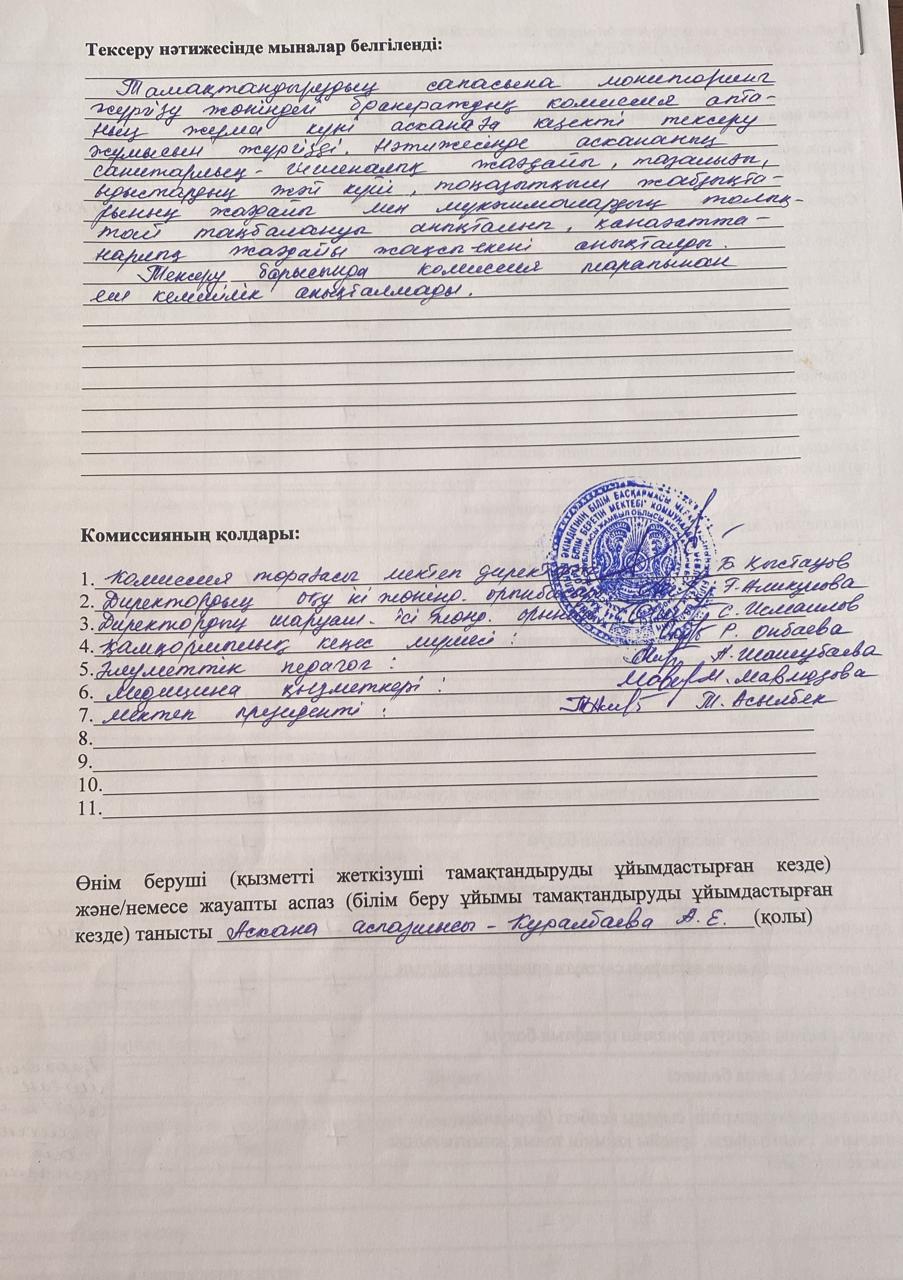 Тексеру нәтижесінде мыналар белгіленді:
Тамақтандырудың сапасына мониторинг
жүргізу жөніндегі бракераждық комиссия апта-
ның жұма күні асханаға кезекті тексеру
жұмысын жүргізді. Нәтижесінде асхананың
санитарлық-гигиеналық жағдайы, тазалығы,
ыдыстардың жай күйі, тоңазытқыш жабдықта-
рының жағдайы мен
той таңбалануы анықталып, қанағатта-
нарлық жағдайы жақсы екені анықталды.
Тексеру барысында комиссия тарапынан
еш кемшілік анықталмады.
Комиссияның қолдары:
1. Комиссия төрағасы мектеп директ Б. Қыстауов
2. Директордың оқу ісі жөнінд. орынба Г. Алимкулова
3. Директордың шаруаш. ісі жөнд. орын С. Исмаилов
4. Қамқоршылық кеңес мүшесі : Р. Онбаева
5. Әлеуметтік педагог : А. Шошубаева
6. Медицина қызметкері : М. Мавлюдова
7. Мектеп президенті : Т. Асылбек
8.
9.
10.
11.
ӘКІМДІГІНІҢ БІЛІМ БАСҚАРМАСЫ
БІЛІМ БЕРЕТІН МЕКТЕБІ" КОММУНАЛ
Өнім беруші (қызметті жеткізуші тамақтандыруды ұйымдастырған кезде)
және/немесе жауапты аспаз (білім беру ұйымы тамақтандыруды ұйымдастырған
кезде) танысты Асхана аспазшысы - Куралбаева А. Е. (қолы)